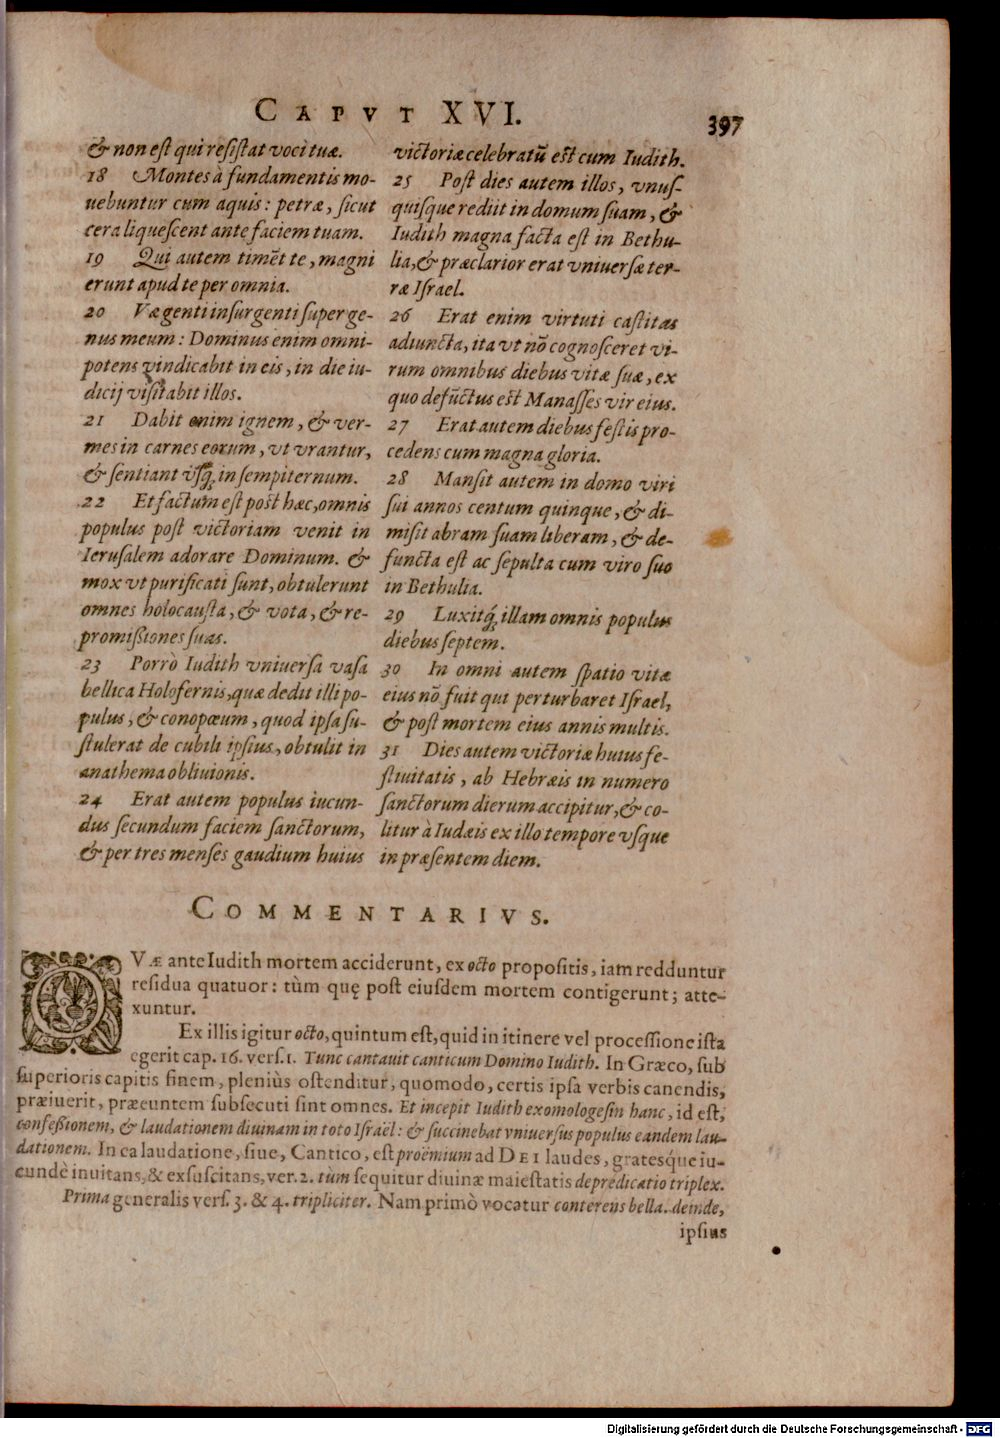 CAPVT XVI.
397
& non est qui resistat voci tuæ.
18 Montes à fundamentis mo-
uebuntur cum aquis: petræ, sicut
cera liquescent ante faciem tuam.
19 Qui autem timēt te, magni
erunt apud te per omnia.
20 Væ genti insurgenti super ge-
nus meum: Dominus enim omni-
potens vindicabit in eis, in die iu-
dicij visitabit illos.
21 Dabit enim ignem, & ver-
mes in carnes eorum, vt vrantur,
& sentiant vsq; in sempiternum.
22 Et factum est post hæc, omnis
populus post victoriam venit in
Ierusalem adorare Dominum. &
mox vt purificati sunt, obtulerunt
omnes holocausta, & vota, & re-
promißiones suas.
23 Porrò Iudith vniuersa vasa
bellica Holofernis, quæ dedit illi po-
pulus, & conopœum, quod ipsa su-
stulerat de cubili ipsius, obtulit in
anathema obliuionis.
24 Erat autem populus iucun-
dus secundum faciem sanctorum,
& per tres menses gaudium huius
victoriæ celebratū est cum Iudith.
25 Post dies autem illos, vnus-
quisque rediit in domum suam, &
Iudith magna facta est in Bethu-
lia, & præclarior erat vniuersæ ter-
ræ Israel.
26 Erat enim virtuti castitas
adiuncta, ita vt nō cognosceret vi-
rum omnibus diebus vitæ suæ, ex
quo defūctus est Manasses vir eius.
27 Erat autem diebus festis pro-
cedens cum magna gloria.
28 Mansit autem in domo viri
sui annos centum quinque, & di-
misit abram suam liberam, & de-
functa est ac sepulta cum viro suo
in Bethulia.
29 Luxitq; illam omnis populus
diebus septem.
30 In omni autem spatio vitæ
eius nō fuit qui perturbaret Israel,
& post mortem eius annis multis.
31 Dies autem victoriæ huius fe-
stiuitatis, ab Hebræis in numero
sanctorum dierum accipitur, & co-
litur à Iudæis ex illo tempore vsque
in præsentem diem.
COMMENTARIVS.
QVÆ ante Iudith mortem acciderunt, ex octo propositis, iam redduntur
residua quatuor: tùm quę post eiusdem mortem contigerunt; atte-
xuntur.
Ex illis igitur octo, quintum est, quid in itinere vel processione ista
egerit cap. 16. vers. 1. Tunc cantauit canticum Domino Iudith. In Græco, sub
superioris capitis finem, pleniùs ostenditur, quomodo, certis ipsa verbis canendis,
præiuerit, præeuntem subsecuti sint omnes. Et incepit Iudith exomologesin hanc, id est,
confeßionem, & laudationem diuinam in toto Israël: & succinebat vniuersus populus eandem lau-
dationem. In ea laudatione, siue, Cantico, est proëmium ad DEI laudes, gratesque iu-
cundè inuitans, & exsuscitans, ver. 2. tùm sequitur diuinæ maiestatis depredicatio triplex.
Prima generalis vers. 3. & 4. tripliciter. Nam primò vocatur conterens bella. deinde,
ipsius
Digitalisierung gefördert durch die Deutsche Forschungsgemeinschaft - DFG